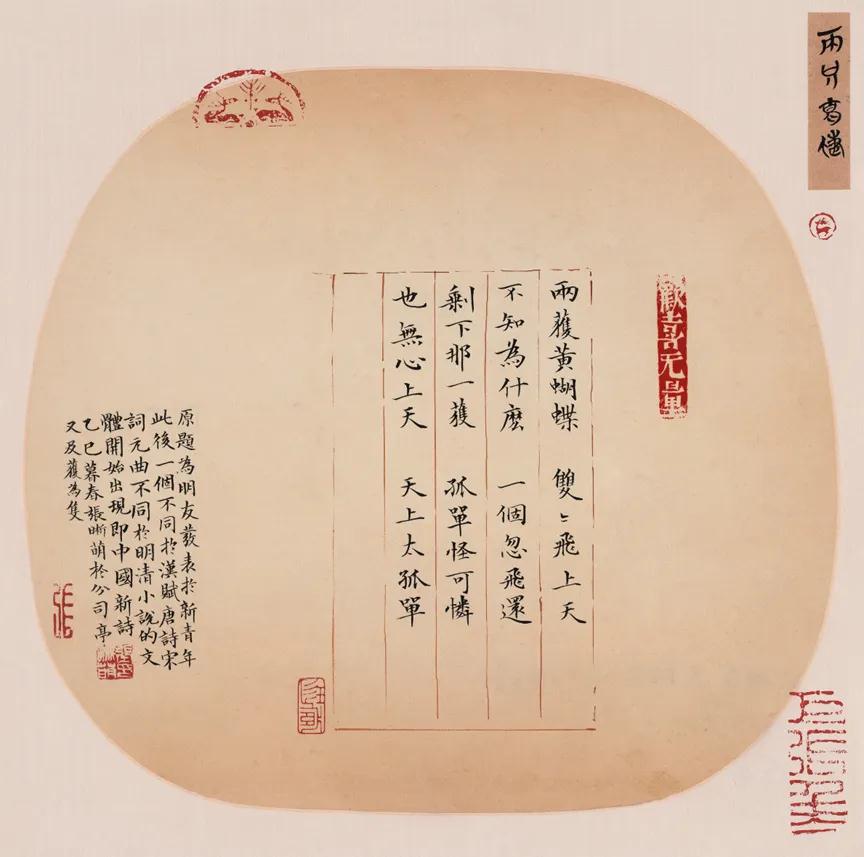 歡喜无量
兩獲黃蝴蝶 雙〻飛上天
不知為什麼 一個忽飛還
剩下那一獲 孤單怪可憐
也無心上天 天上太孤單
原題為朋友發表於新青年
此後一個不同於漢賦唐詩宋
詞元曲不同於明清小說的文
體開始出現即中國新詩
乙巳暮春張晰萌於公司亭
又及獲為隻
張